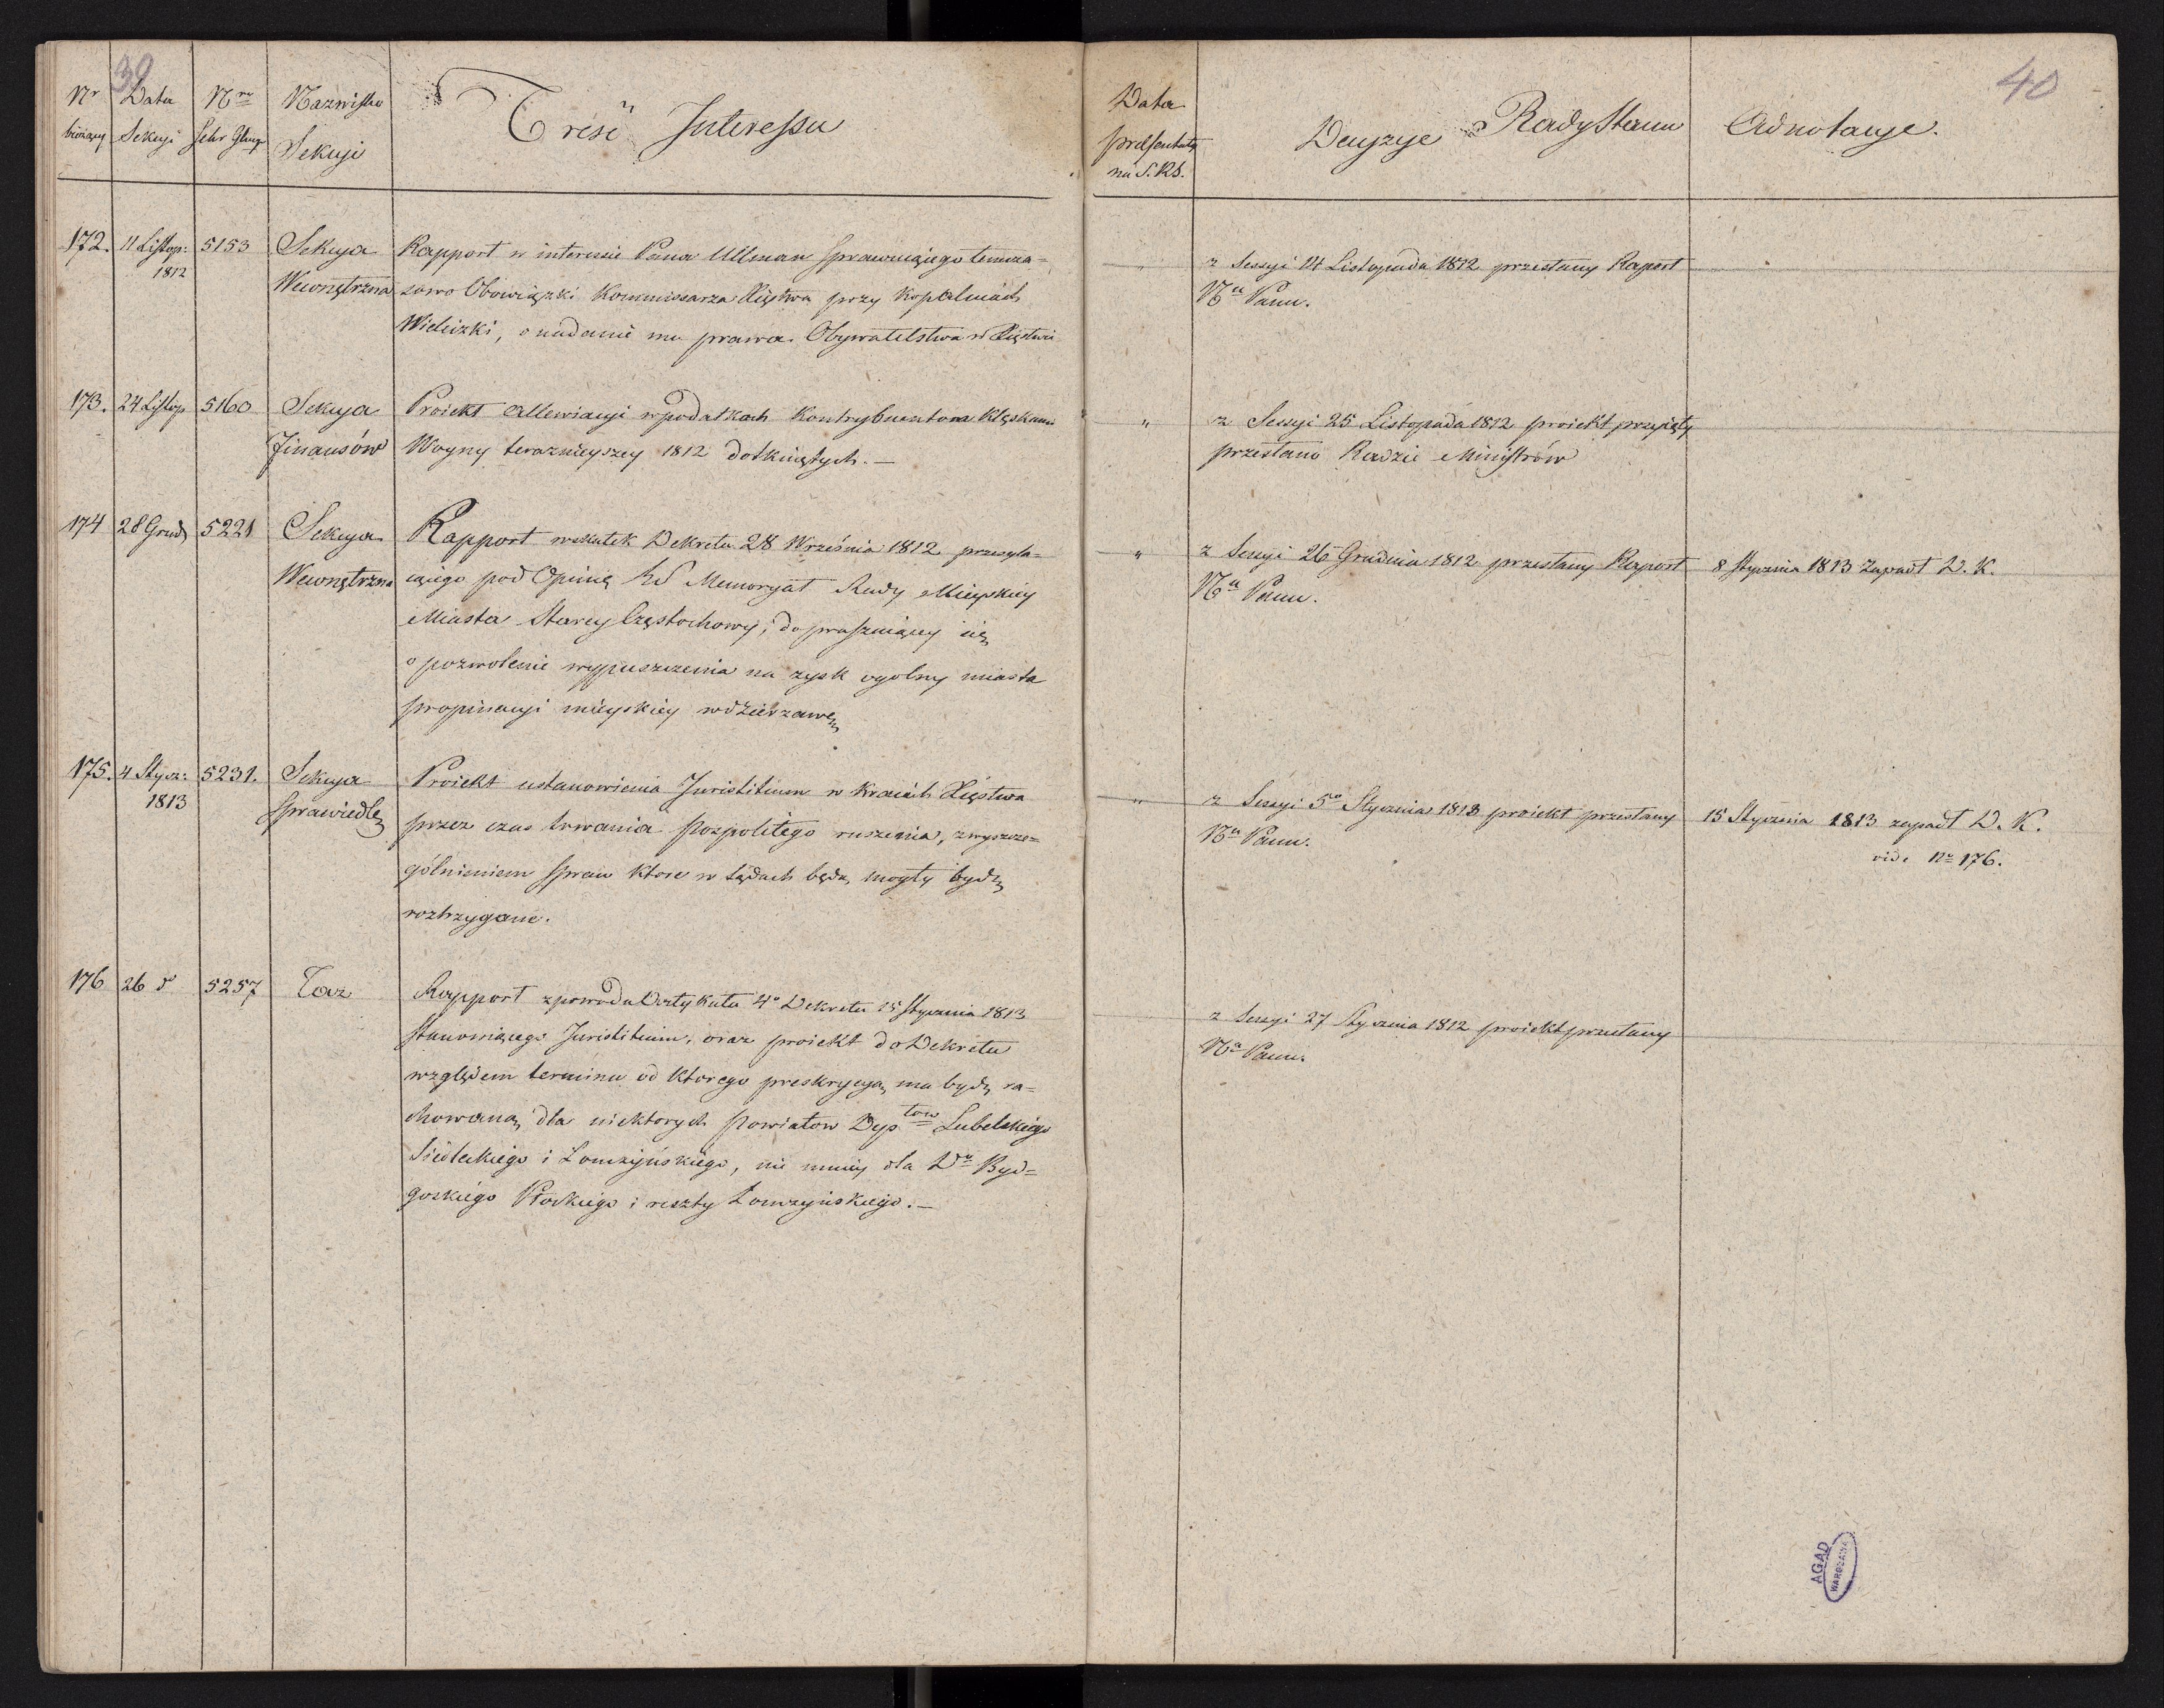 39
Nr bieżący
Data Sekcyi
Nro Sekr Głnego
Nazwisko Sekcyi
Treść Interessu
Data presentaty na S. RS.
Decyzye Rady Stanu
Adnotacye.
40
172. 11 Listop: 1812 5153 Sekcya Wewnętrzna
Rapport w interessie Pana Ullman sprawuiącego tymcza=
sowo Obowiązki Kommissarza Xięstwa przy kopalniach
Wieliczki, o nadanie mu prawa Obywatelstwa w Xięstwie
" z Sessyi 14 Listopada 1812 przesłany Raport
Nu Panu.
173. 24 Listop 5160 Sekcya Finansów
Proiekt allewiacyi w podatkach Kontrybuentom klęskami
Woyny teraznieyszey 1812 dotkniętych. —
" z Sessyi 25 Listopada 1812 proiekt przyięty
przesłano Radzie Ministrów
174 28 Grud 5221 Sekcya Wewnętrzna
Rapport wskutek Dekretu 28 Września 1812 przesyła=
iącego pod Opinią RS Memoryał Rady Mieyskiey
Miasta Starey Częstochowy, dopraszaiący się
o pozwolenie wypuszczenia na zysk ogolny miasta
propinacyi mieyskiey w dzierzawę
" z Sessyi 26 Grudnia 1812 przesłany Raport
Nu Panu.
8 Stycznia 1813 zapadł D. K.
175. 4 Stycz: 1813 5231. Sekcya Sprawiedl
Proiekt ustanowienia Juristitium w kraiach Xięstwa
przez czas trwania Pospolitego ruszenia, z wyszcze=
gólnieniem spraw ktore w sądach będą mogły bydź
roztrzygane.
" z Sessyi 5go Stycznia 1813 proiekt przesłany
Nu Panu.
15 Stycznia 1813 zapadł D. K.
vide No 176.
176 26 d 5257 Taz
Rapport z powodu Artykułu 4o Dekretu 15 Stycznia 1813
stanowiącego Juristitium, oraz proiekt do Dekretu
względem terminu od ktorego preskrypcya ma bydź ra=
chowaną dla niektorych Powiatow Dep tow Lubelskiego
Siedleckiego i Łomżyńskiego, nie mniey dla Du Byd=
goskiego Płockiego i reszty Łomzyńskiego. —
z Sessyi 27 Stycznia 1812 proiekt przesłany
Nu Panu.
AGAD
WARSZAWA